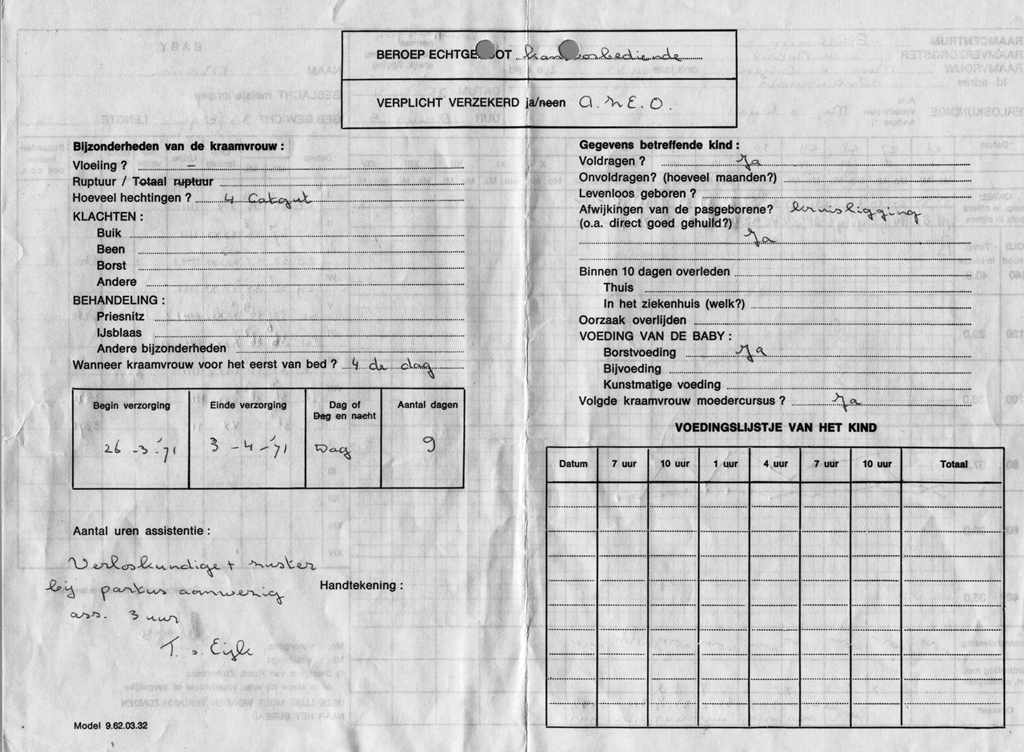 BEROEP ECHTGE OT kan oorbediende
VERPLICHT VERZEKERD ja/neen A.N.E.O.
Bijzonderheden van de kraamvrouw :
Vloeiing ? –
Ruptuur / Totaal ruptuur
Hoeveel hechtingen ? 4 Catgut
KLACHTEN :
Buik
Been
Borst
Andere
BEHANDELING :
Priesnitz
IJsblaas
Andere bijzonderheden
Wanneer kraamvrouw voor het eerst van bed ? 4 de dag
Begin verzorging Einde verzorging Dag of Dag en nacht Aantal dagen
26-3-'71 3-4-'71 Dag 9
Aantal uren assistentie :
Verloskundige + zuster
bij partus aanwezig
ass. 3 uur
Handtekening :
Model 9.62.03.32
Gegevens betreffende kind :
Voldragen ? Ja
Onvoldragen? (hoeveel maanden?)
Levenloos geboren ?
Afwijkingen van de pasgeborene? kruisligging
(o.a. direct goed gehuild?) Ja
Binnen 10 dagen overleden
Thuis
In het ziekenhuis (welk?)
Oorzaak overlijden
VOEDING VAN DE BABY :
Borstvoeding Ja
Bijvoeding
Kunstmatige voeding
Volgde kraamvrouw moedercursus ? Ja
VOEDINGSLIJSTJE VAN HET KIND
Datum 7 uur 10 uur 1 uur 4 uur 7 uur 10 uur Totaal